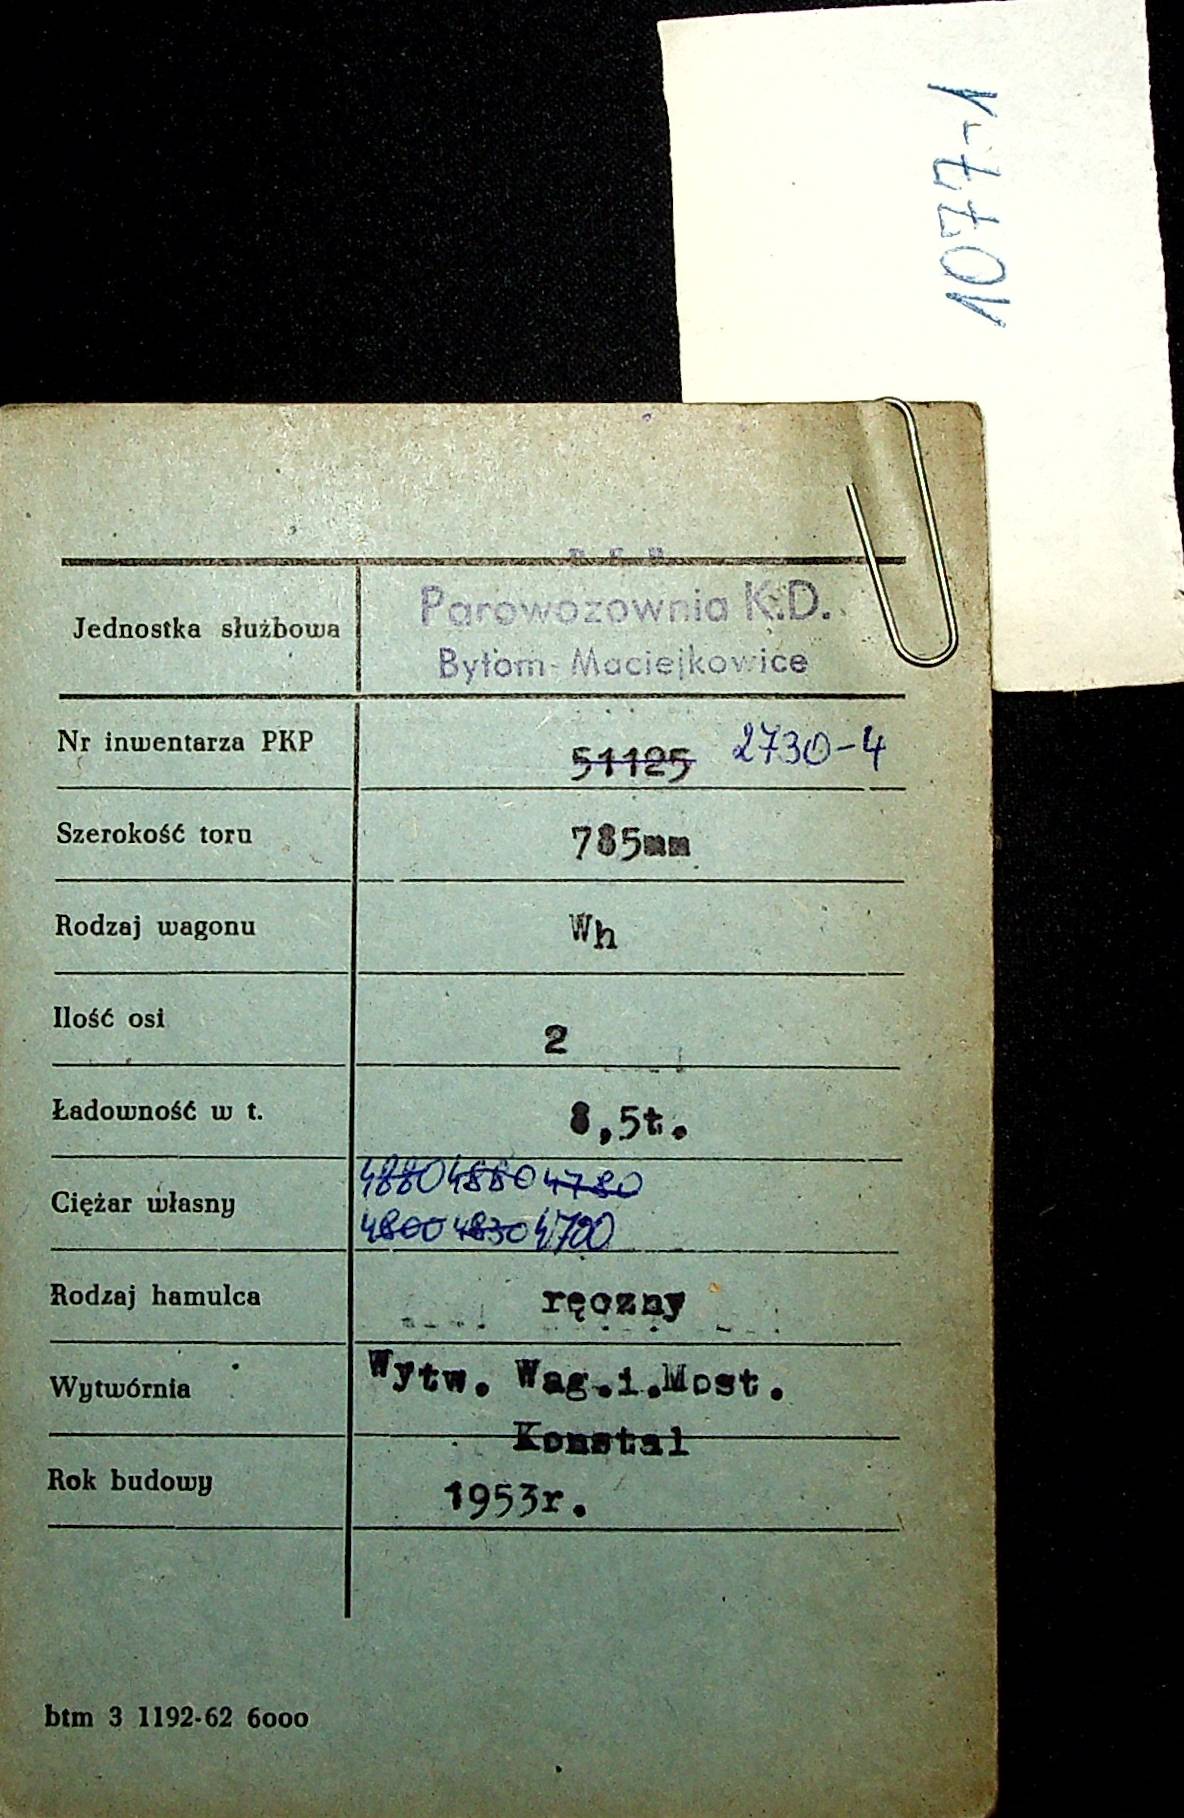 1077-1
P K P
Jednostka służbowa
Parowozownia K.D.
Bytom-Maciejkowice
Nr inwentarza PKP 51125 2730-4
Szerokość toru 785mm
Rodzaj wagonu Wh
Ilość osi 2
Ładowność w t. 8,5t.
4880 4880 4780
Ciężar własny
4800 4830 4700
Rodzaj hamulca ręczny
Wytwórnia Wytw. Wag.i.Most.
Konstal
Rok budowy 1953r.
btm 3 1192-62 6000